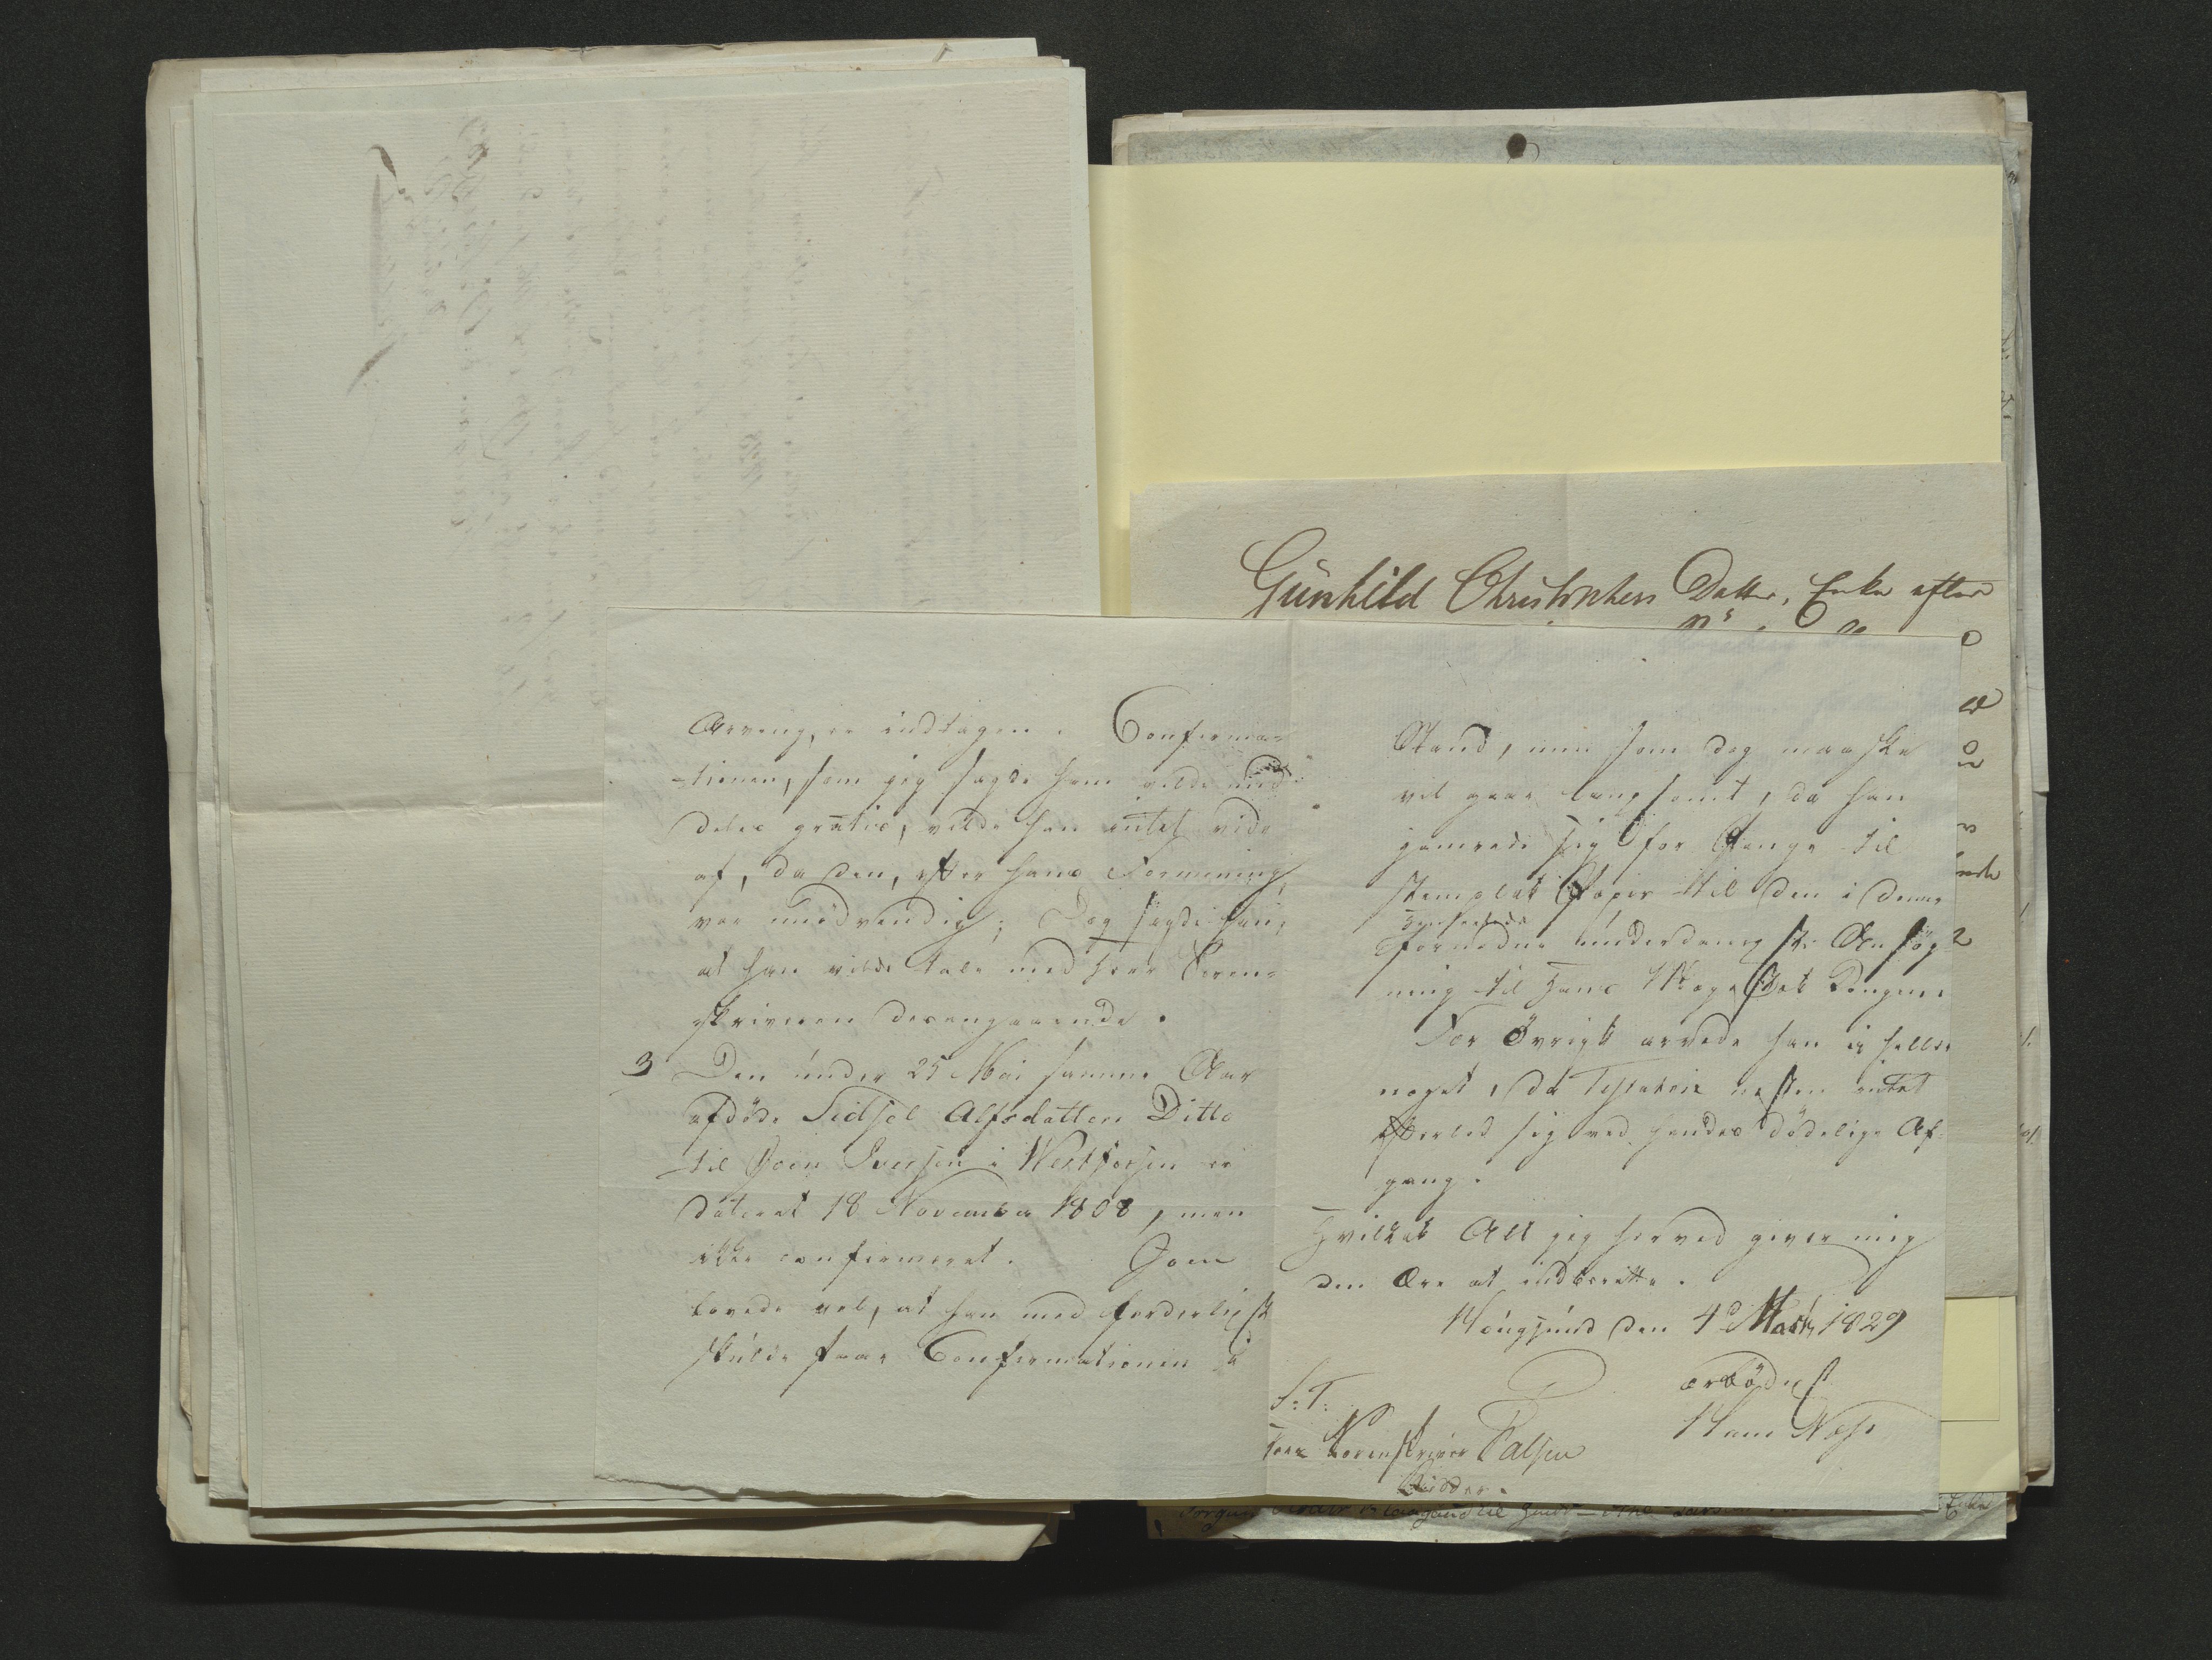 Gunhild Christophers Datter, Enke efter
Arving, er indtagen. Confirma-
-tionen, som jeg sagde ham vilde med-
deles gratis, vilde han intet vide
af, da den, efter hans Formening,
var unødvendig; Dog sagde han,
at han vilde tale med Herr Soren-
skriveren desangaaende.
3 Den under 25 Mai samme Aar
afdøde Sidsel Alfsdatters Ditto
til Joen Iversen i Westfossen er
dateret 18 November 1808, men
ikke confirmeret. Joen
lovede vel, at han med forderligst
skulde faae Confirmationen i
Stand, men som dog maaske
vil gaae langsomt, da han
jamrede sig for Penge til
stemplet Papir til den i denne
Henseende
fornødne underdanigste Ansøg-
ning til Hans Majestæt Kongen.
For Øvrigt arvede han ei heller
noget, da Testatrix næsten intet
efterlod sig ved hendes dødelige Af-
gang.
Hvilket Alt jeg herved giver mig
den Ære at indberette.
Hougsund den 4de Marts 1829
ærbødigst
S: T: Næss
Herr Sorenskriver Palsen